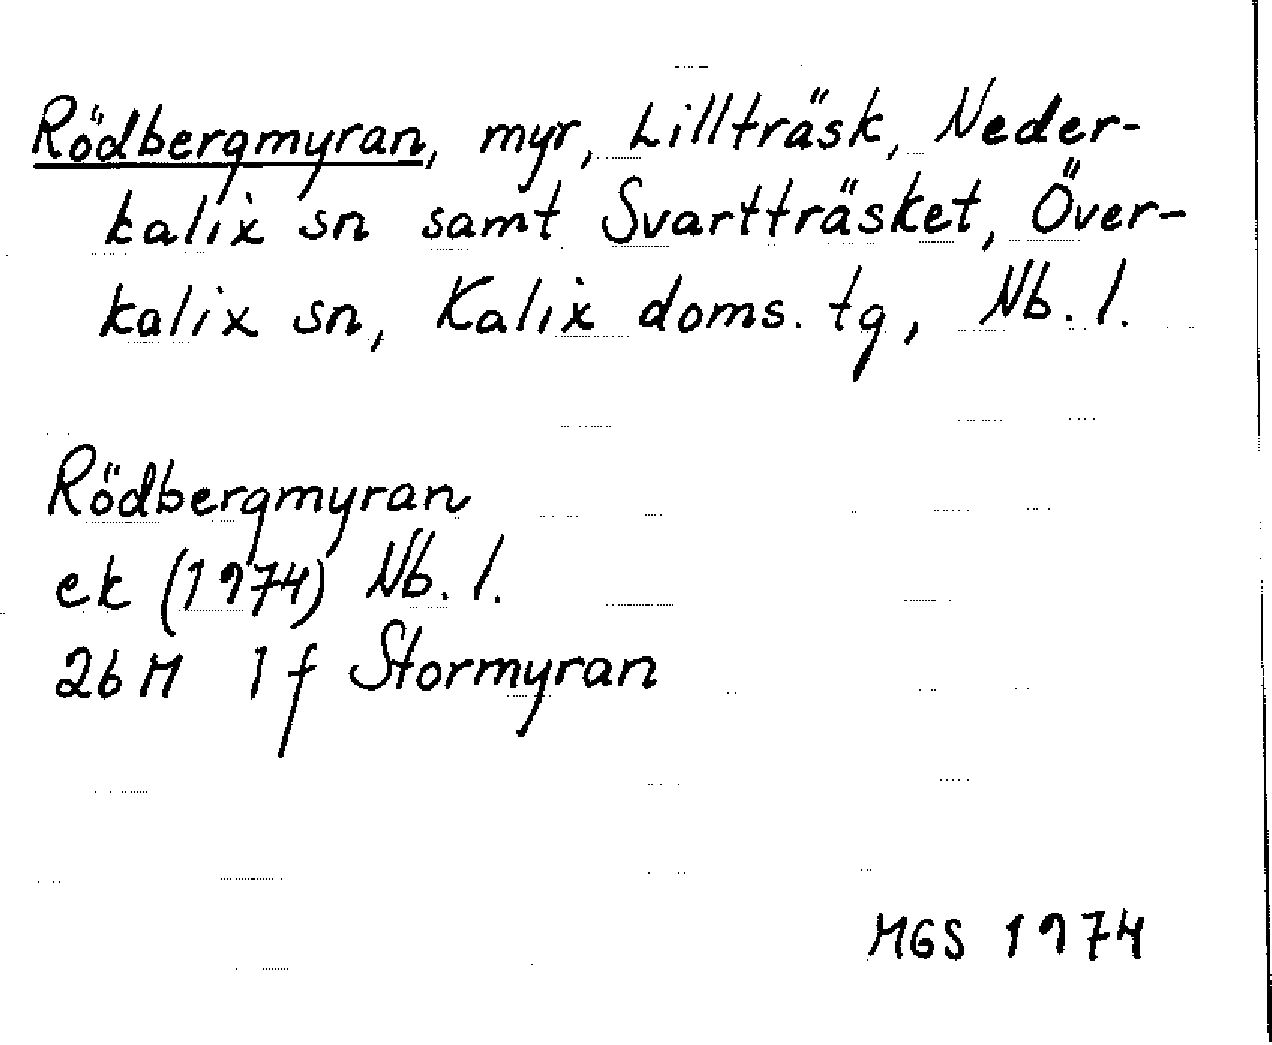 Rödbergmyran, myr, Lillträsk, Neder-
kalix sn samt Svartträsket, Över-
kalix sn, Kalix doms. tg, Nb. l.
Rödbergmyran
ek (1974) Nb. l.
26 M 1 f Stormyran
MGS 1974